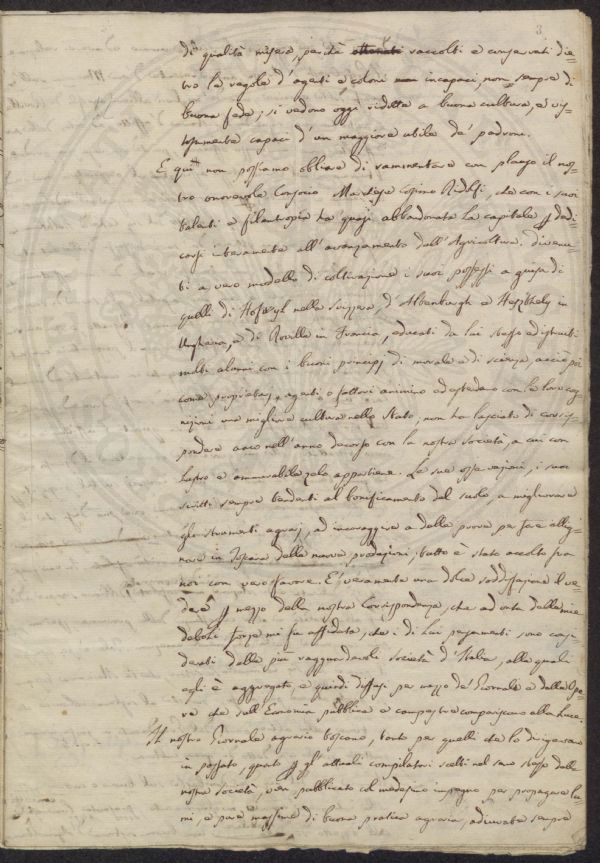 3
di qualità misera, perchè raccolti e conservati die-
tro le regole d'agenti e coloni incapaci, non sempre di
buona fede; si vedono oggi ridotte a buona cultura, e vis-
tosamente capaci d'un maggiore utile de' padroni.
E quì non possiamo obliare di rammentare con plauso il nos-
tro onorevole Consocio Marchese Cosimo Ridolfi, che con i suoi
talenti e filantropia ha quasi abbandonata la capitale p dedi-
carsi interamente all'avanzamento dell'Agricoltura. Divenu-
ti a vero modello di coltivazione i suoi possessi a guisa di
quelli di Hofwyl nella Svizzera, d'Altenburgh e Heszthely in
Ungheria, e di Roville in Francia, educati da lui stesso ed istruiti
molti alunni con i buoni principj di morale e di scienza, acciò poi
come proprietarj, agenti o fattori animino ed estendano con le loro cog-
nizioni una migliore cultura nello Stato, non ha lasciato di corris-
pondere anco nell'anno decorso con la nostra società, a cui con
lustro e ammirabile zelo appartiene. Le sue osservazioni, i suoi
scritti sempre tendenti al bonificamento del suolo, a migliorare
gli strumenti agrarj, ad incoraggire a delle prove per fare allig-
nare in Toscana delle nuove produzioni; tutto è stato accolto fra
noi con vero favore. E' veramente una dolce soddisfazione il ve-
dere p mezzo della nostra Corrispondenza, che ad onta delle mie
deboli forze mi fu affidata, che i di Lui pensamenti sono consi-
derati dalle più ragguardevoli società d'Italia, alle quali
egli è aggregato, e quindi diffusi per mezzo de' Giornali e delle Ope-
re che sull'Economia pubblica e campestre compariscono alla luce.
Il nostro Giornale agrario toscano, tanto per quelli che lo dirigevano
in passato, quanto p gl'attuali compilatori scelti nel seno stesso della
nostra società, vien pubblicato col medesimo impegno per propagare lu-
mi, e pure massime di buona pratica agraria, adiuvate sempre